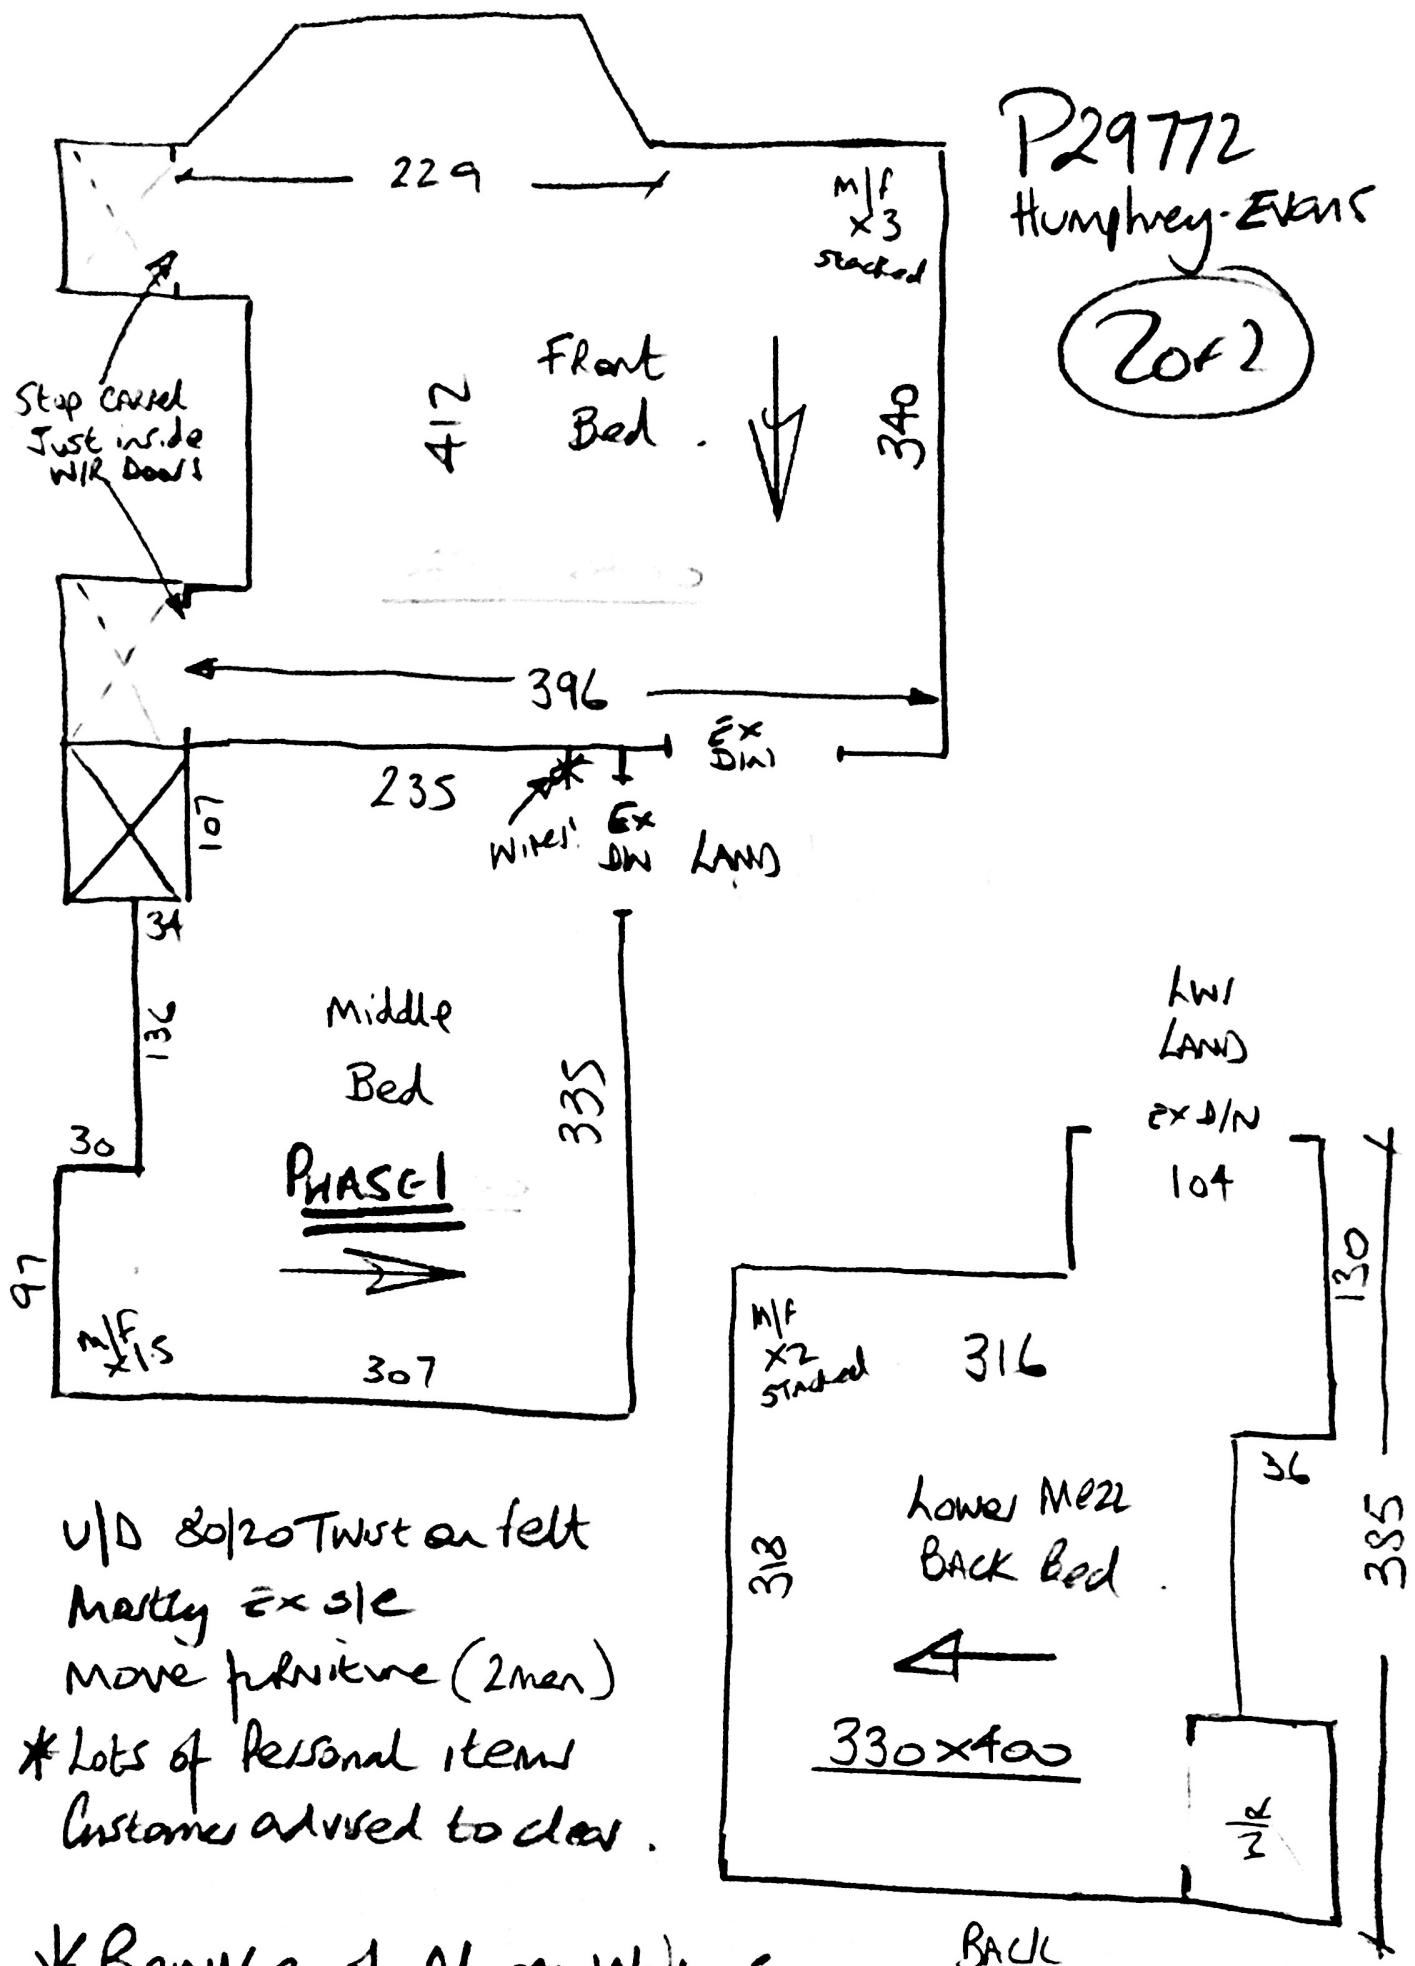 P29772
Humphrey-Evans
2 of 2
229
M/F
x3
stacked
Front
Bed.
412
340
Stop carpet
Just inside
W/R Doors
396
Ex
D/W
235
107
Wires!
Ex
DW
LAND
34
136
Middle
Bed
335
30
PHASE 1
97
M/F
x1.5
307
LWR
LAND
EX D/W
104
130
M/F
x2
STACKED
316
36
Lower Mezz
BACK Bed.
318
385
330x400
W/R
U/D 80/20 Twist on felt
Mostly Ex s/e
Move furniture (2men)
* Lots of Personal items
Customer advised to clear.
BACK